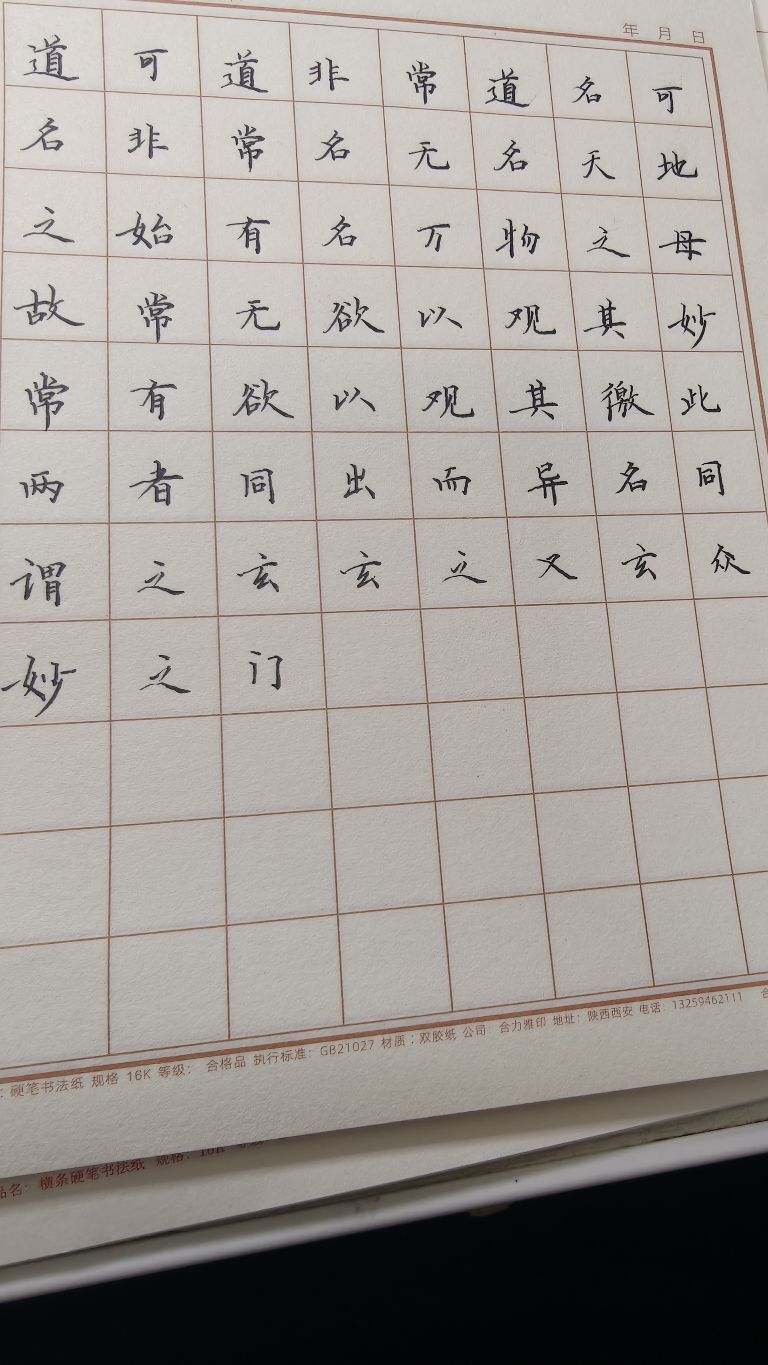 年 月 日
道可道非常道名可
名非常名无名天地
之始有名万物之母
故常无欲以观其妙
常有欲以观其徼此
两者同出而异名同
谓之玄玄之又玄众
妙之门
：硬笔书法纸 规格 16K 等级： 合格品 执行标准：GB21027 材质：双胶纸 公司 合力雅印 地址：陕西西安 电话：13259462111
品名：横条硬笔书法纸 规格：16K